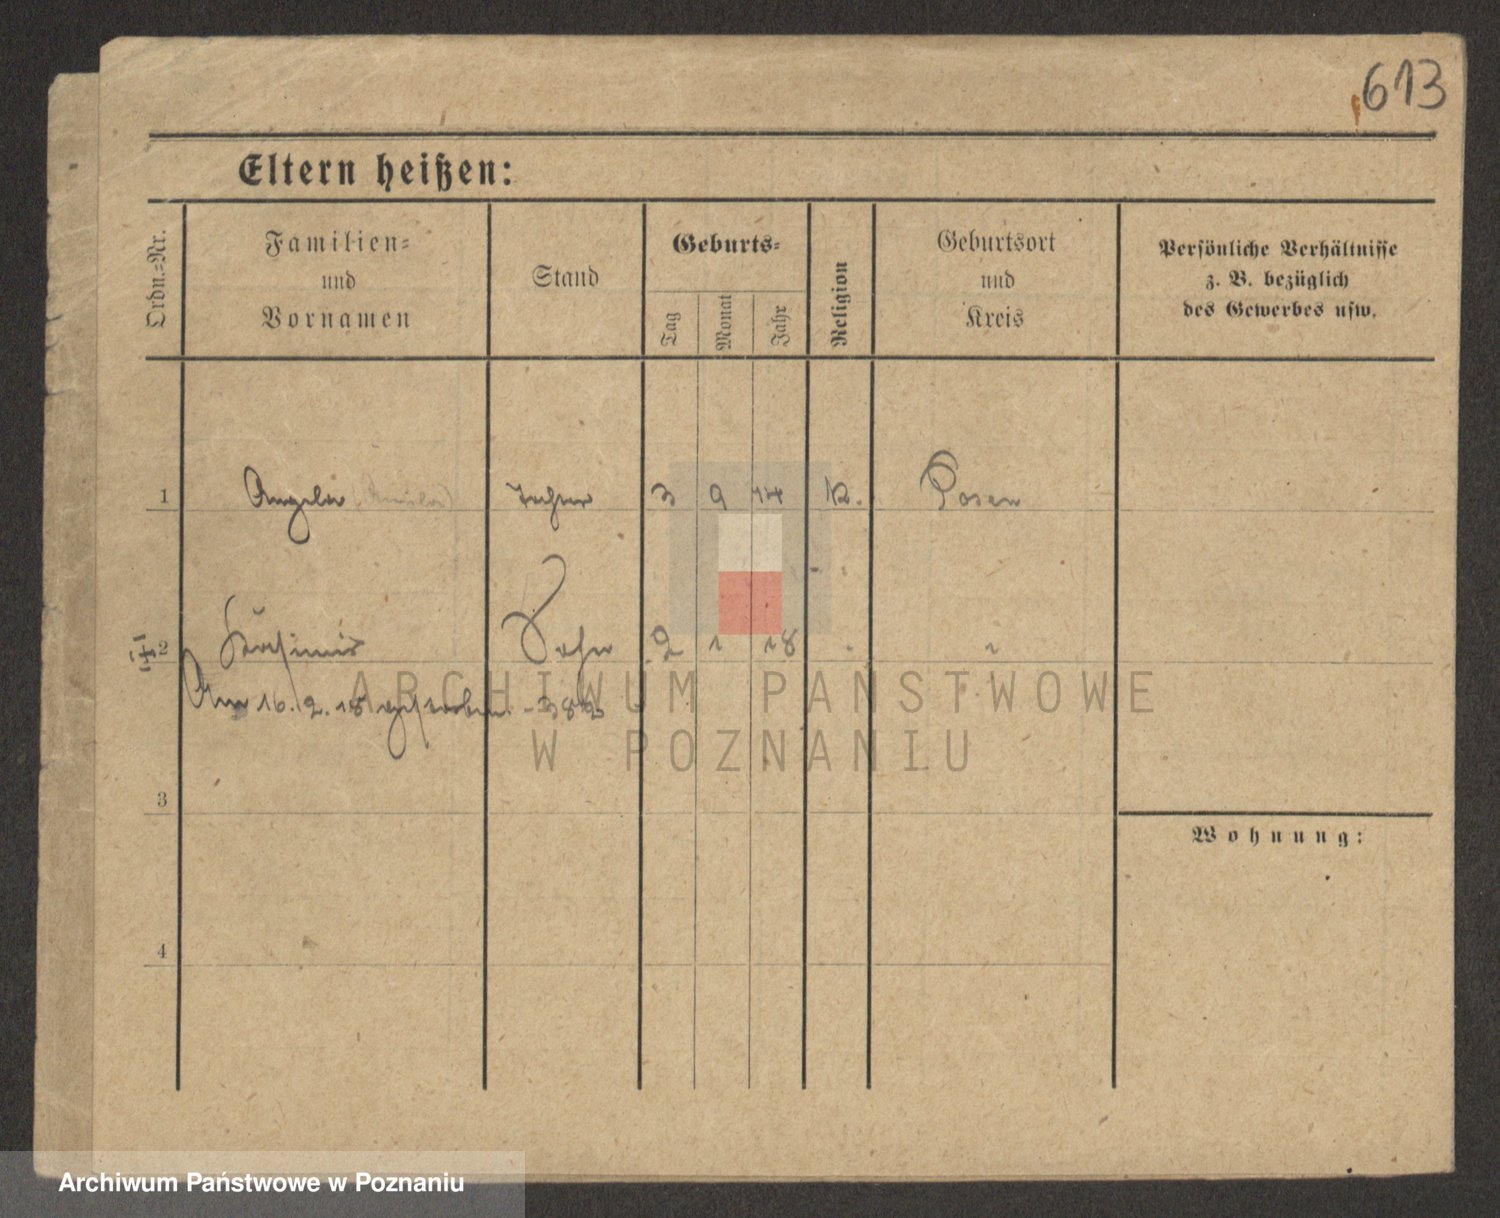 613
Eltern heißen:
Ordn.=Nr.
Familien=
und
Vornamen
Stand
Geburts=
Tag
Monat
Jahr
Religion
Geburtsort
und
Kreis
Persönliche Verhältnisse
z. B. bezüglich
des Gewerbes usw.
1 Angela Tochter 3 9 14 k. Posen
2 Kasimir Sohn 2 1 18 "
Am 16. 2. 18 verstorben.
3
Wohnung:
4
ARCHIWUM PAŃSTWOWE
W POZNANIU
Archiwum Państwowe w Poznaniu